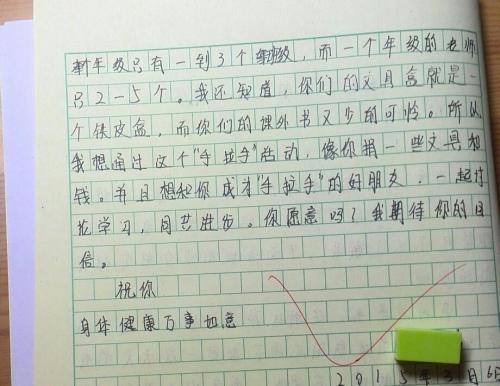 年级只有一到3个班级，而一个年级的老师
只2-5个。我还知道，你们的文具盒就是一
个铁皮盒，而你们的课外书又少的可怜。所以
我想通过这个“手拉手”活动，像你捐一些文具和
钱。并且想和你成为“手拉手”的好朋友，一起讨
论学习，同共进步。你愿意吗？我期待你的回
信。
祝你
身体健康万事如意
2015年3月6日